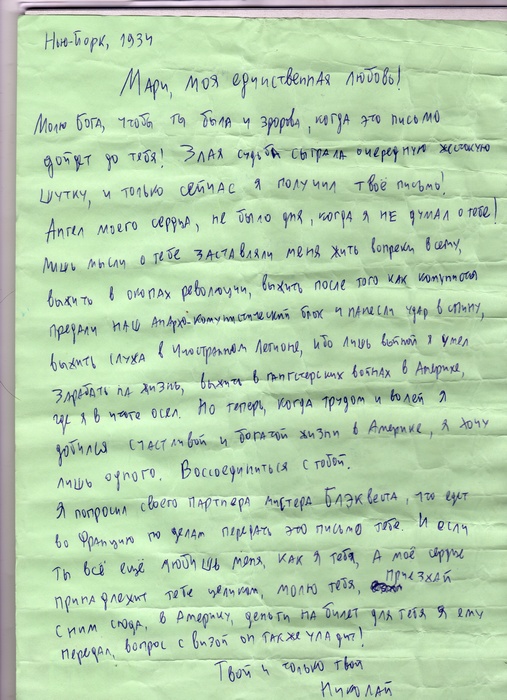 Нью-Йорк, 1934
Мари, моя единственная любовь!
Молю Бога, чтобы ты была и здорова, когда это письмо
дойдет до тебя! Злая судьба сыграла очередную жестокую
шутку, и только сейчас я получил твоё письмо!
Ангел моего сердца, не было дня, когда я не думал о тебе!
Лишь мысли о тебе заставляли меня жить вопреки всему,
выжить в окопах революции, выжить после того как коммунисты
предали наш анархо-коммунистический блок и нанесли удар в спину,
выжить служа в Иностранном Легионе, ибо лишь войной я умел
зарабать на жизнь, выжить в гангстерских войнах в Америке,
где я в итоге осел. Но теперь, когда трудом и волей я
добился счастливой и богатой жизни в Америке, я хочу
лишь одного. Воссоединиться с тобой.
Я попросил своего партнера мистера Блэквеста, что едет
во Францию по делам передать это письмо тебе. И если
ты всё ещё любишь меня, как я тебя, а моё сердце
принадлежит тебе целиком, молю тебя, приезжай
с ним сюда, в Америку, деньги на билет для тебя я ему
передал, вопрос с визой он также уладит!
Твой и только твой
Николай